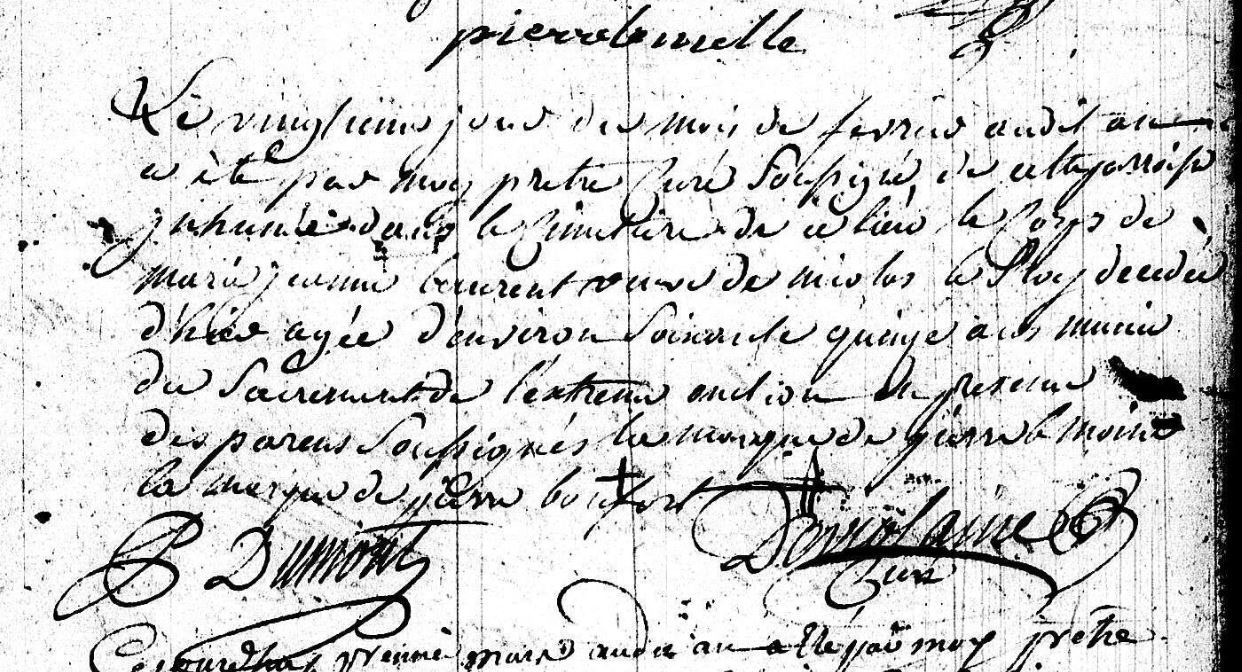 pierre lemelle
Le vingtieme jour du mois de fevrier audit an
a été par moy pretre Curé Soussigné de cette parroisse
inhumée dans le Cimetiere de ce lieu le Corps de
marie jeanne laurent veuve de nicolas le Ploy decedée
d'hier agée d'environ Soixante quinze ans munie
du Sacrement de l'extreme onction en presence
des parens Soussignés la marque de pierre le moine
la marque de pierre
P Dumont
Curé
Cejourdhuy premier mars audit an a été par moy prêtre